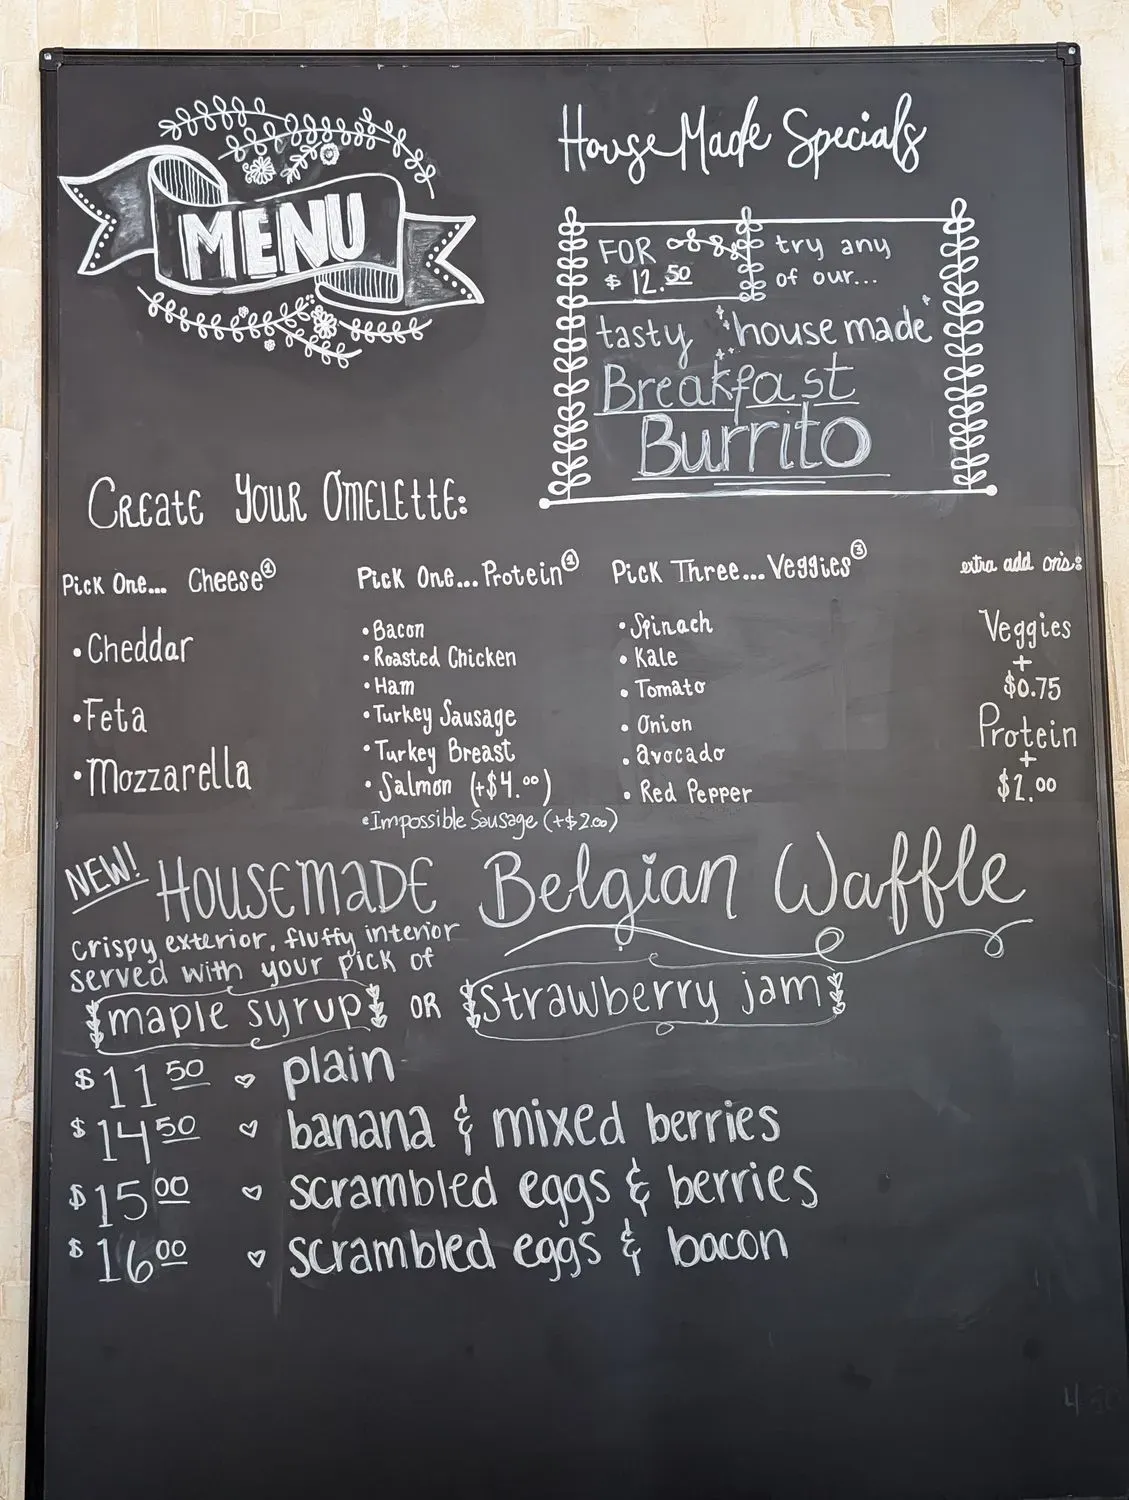 MENU
House Made Specials
FOR
$12.50
try any
of our...
tasty house made
Breakfast
Burrito
Create Your Omelette:
Pick One... Cheese
Cheddar
Feta
Mozzarella
Pick One... Protein 1
Bacon
Roasted Chicken
Ham
Turkey Sausage
Turkey Breast
Salmon (+$4.00)
Impossible Sausage (+$2.00)
Pick Three... Veggies 3
Spinach
Kale
Tomato
Onion
avocado
Red Pepper
extra add on's:
Veggies
+
$0.75
Protein
+
$1.00
NEW! Housemade Belgian Waffle
crispy exterior, fluffy interior
served with your pick of
maple syrup OR strawberry jam
$11.50 plain
$14.50 banana & mixed berries
$15.00 scrambled eggs & berries
$16.00 scrambled eggs & bacon